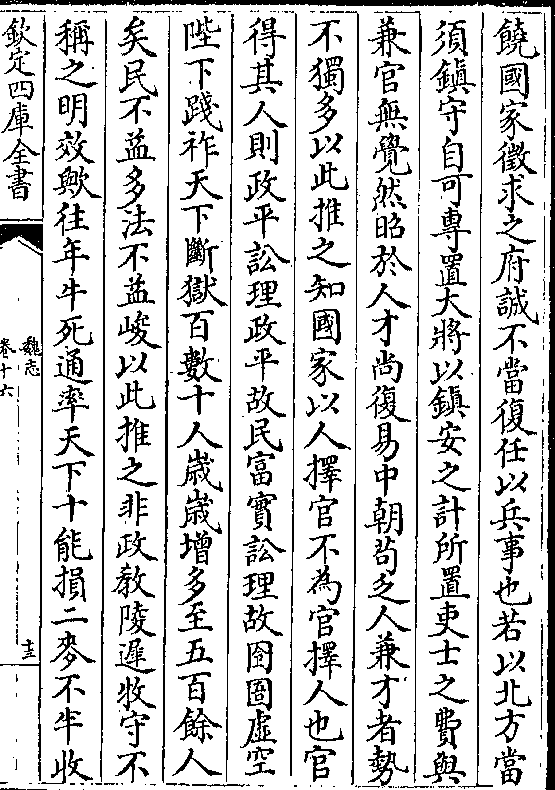 饒國家徵求之府誠不當復任以兵事也若以北方當
須鎮守自可專置大將以鎮安之計所置吏士之費與
兼官無覺然昭於人才尚復易中朝茍乏人兼才者勢
不獨多以此推之知國家以人擇官不為官擇人也官
得其人則政平訟理政平故民富實訟理故囹圄虛空
陛下踐祚天下斷獄百數十人嵗嵗增多至五百餘人
矣民不益多法不益峻以此推之非政教陵遲牧守不
稱之明效歟往年牛死通率天下十能損二麥不半收
欽定四庫全書
魏志
卷十六
十三